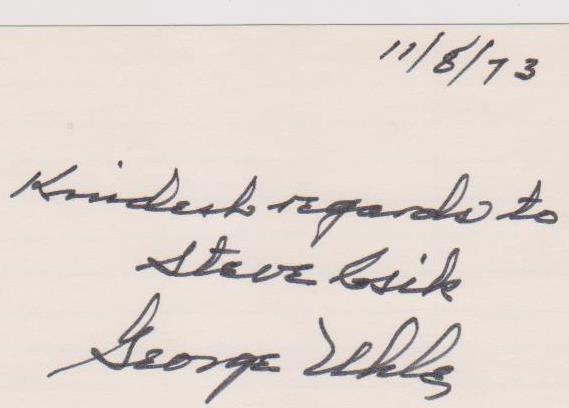 11/8/73
Kindest regards to
Steve Csik
George Uhle